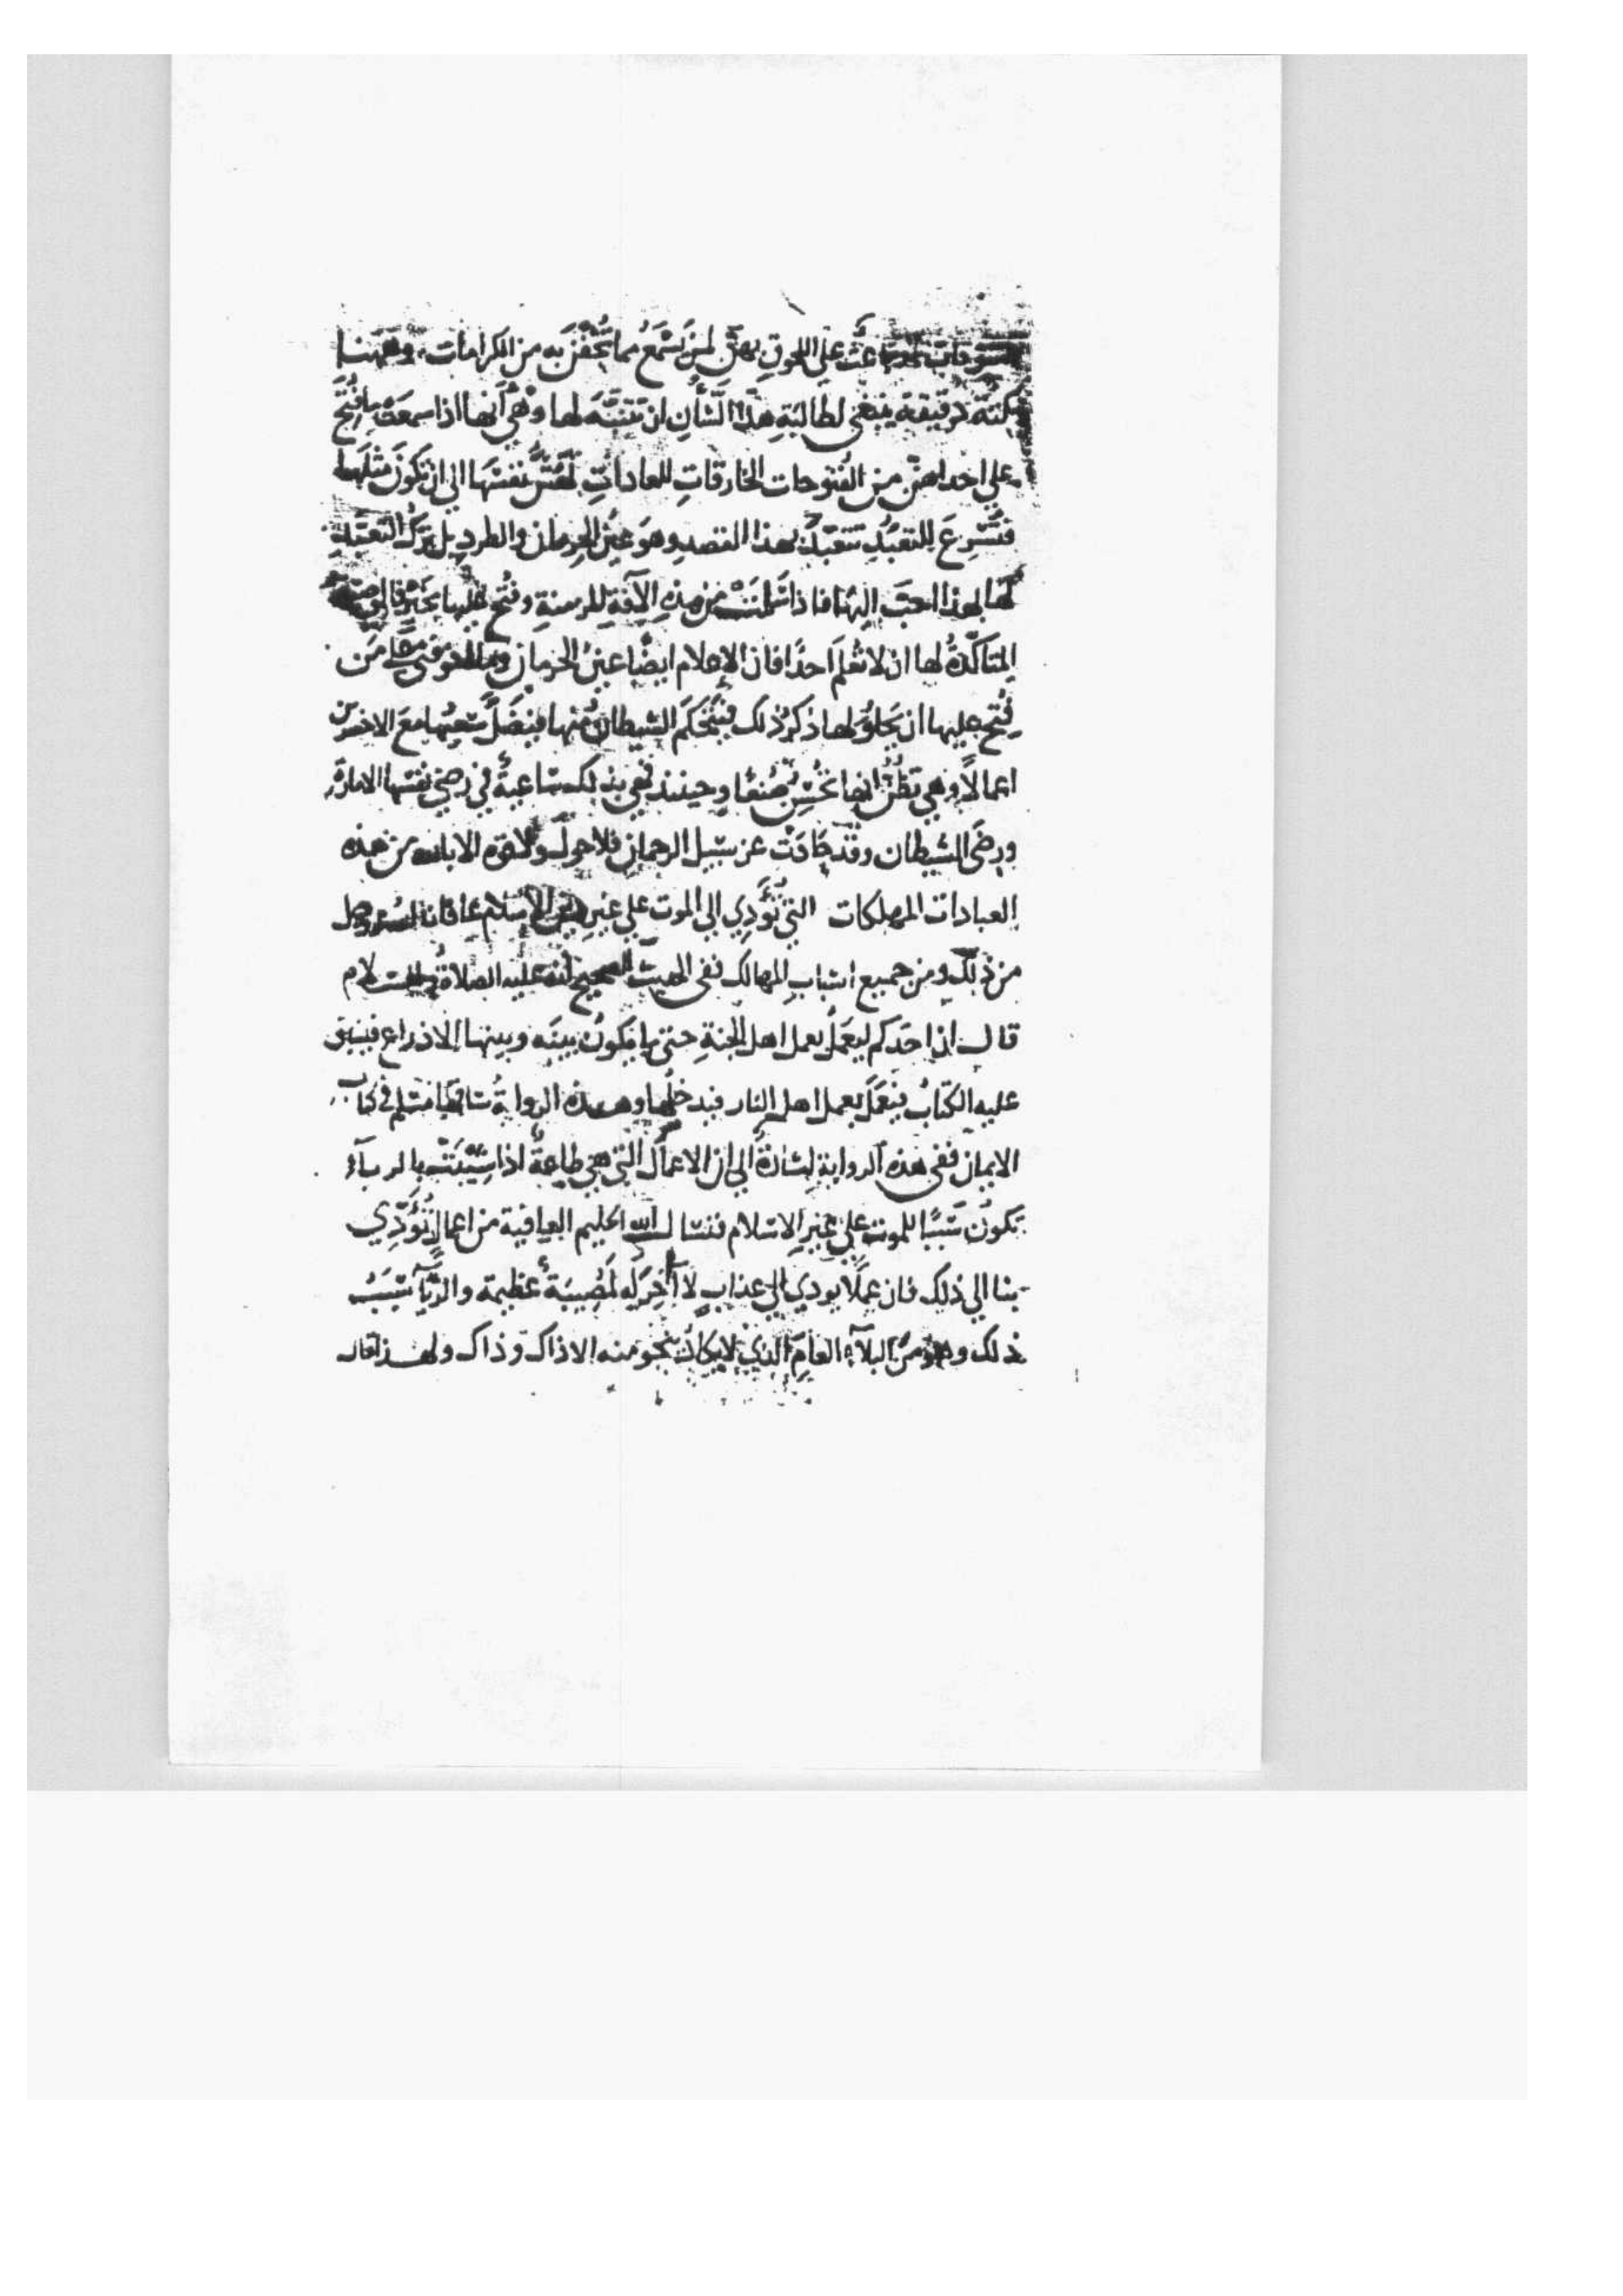 باعثٌ على اللحوقِ بهنّ لمن يَسْمَعُ مما تُتْحَفْنَ به من الكرامات، وههنا
نكتة دقيقة ينبغي لطالبَةِ هذا الشأنِ ان تتنبّه لها وهي أنها اذا سمعَتْ بما فُتِحَ
على احداهنّ من الفتوحات الخارقاتِ للعاداتِ نفسَها الى ان تكونَ مثلَها
فتَشْرعَ للتعبُّدِ تتعبّدُ بهذا القصدِ وهوَ عينُ الحرمان والطردِ بل تركُ التعبّدِ
لها لهذا احبَّ الينا فاذا سَلِمَتْ من هذهِ الآفةِ للرعنةِ وفُتحَ عليها بخيرٍ فالوصيّةُ
المتأكّدةُ لها ان لا تُعلمَ احدًا فان الإعلام ايضًا عينُ الحرمان من
فُتح عليها ان يحلوَ لها ذكرُ ذلك فيتحكمَ الشيطانُ منها فيَضلَّ سَعيُها معَ الاخسرين
اعمالاً وهي تظنُّ انها تُحْسِنُ صُنعًا وحينئذ فهي بذلك ساعيةٌ في رضى نفسها الامارة
ورضَى الشيطان وقد حَادَتْ عن سبيل الرحمانِ فلا حولَ ولا قوة الا بالله من هذه
العبادات المهلكات التي تُؤَدِي الى الموت على غيرِ دين الإسْلام عافانا الله عز وجل
من ذلك ومن جميع اسْبابِ المهالك ففي الحديث الصحيح انه عليه الصلاةُ والسلام
قال ان احَدَكم ليعمَلُ بعمل اهل الجنةِ حتى ما يكونُ بينَه وبينها الا ذراع فيسبق
عليه الكتابُ فيَعْمَلُ بعمل اهل النار فيدخلُها وهذه الروايةُ ساقها مسْلم في كتاب
الايمان ففي هذه الروايةِ اشارةٌ الى ان الاعمالَ التي هي طاعةٌ اذا شِيْبَتْ بالرياءِ
تكونُ سَببًا للموت على غيرِ الاسْلام فنسْال اللهَ الحليم العافية من اعمالٍ تُؤَدِّي
بنا الى ذلك فان عملًا يودي الى عذابٍ لا آخِرَ له لمُصِيبَةٌ عظيمة والرّيآ سَبَبُ
ذلك وهو من البلآءِ العامّ الذي لا يكادُ ينجو منه الا ذاك وذاك ولهذا قال